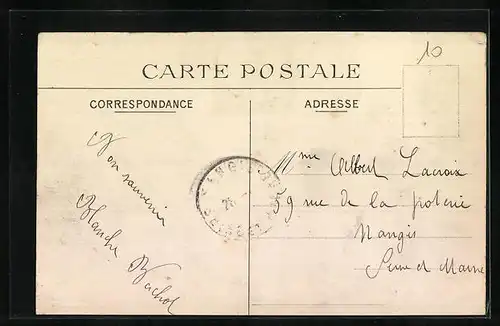 10
CARTE POSTALE
CORRESPONDANCE
ADRESSE
Bon souvenir
Blanche Bachot
NANGIS
26
SEINE-ET-
Mme Albert Lacroix
59 rue de la poterie
Nangis
Seine et Marne